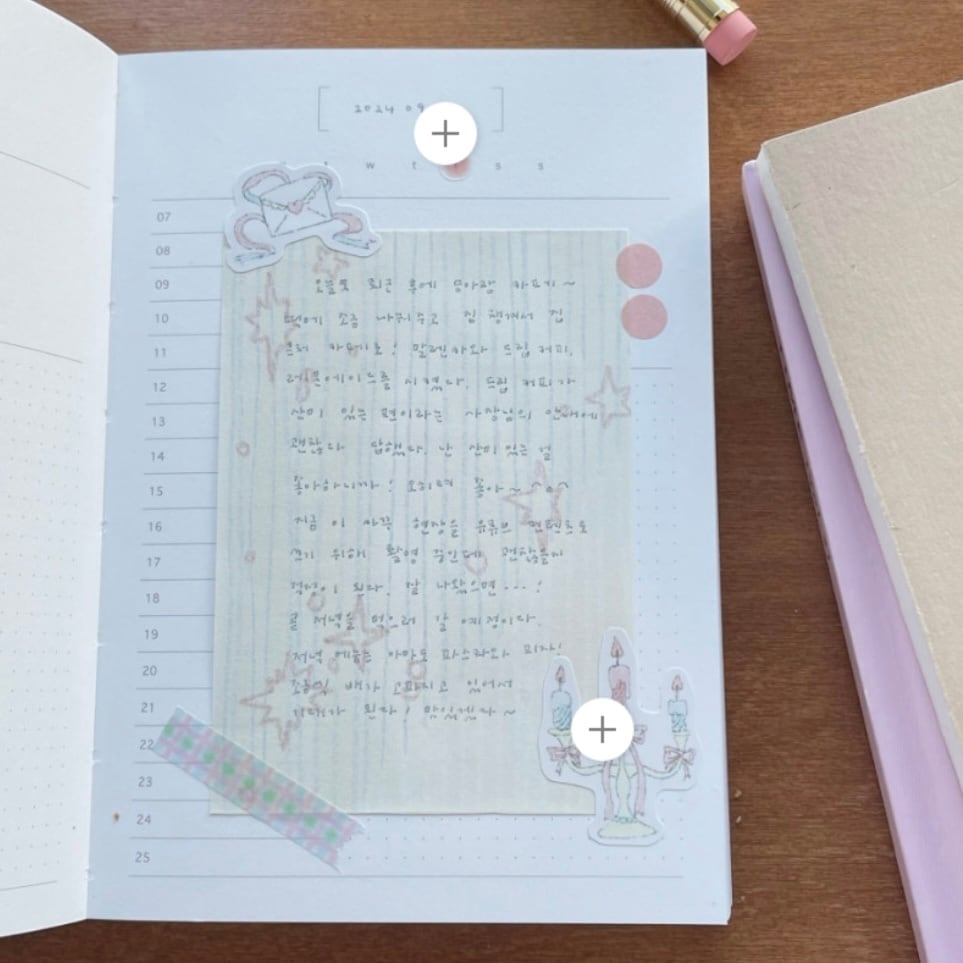 2024 09
t w t f s s
07
08
09
10
11
12
13
14
15
16
17
18
19
20
21
22
23
24
25
오늘도 퇴근 후에 엄마랑 카페가~
떡에 조금 나눠주고 짐 챙겨서 집
근처 카페로! 말렌카와 드립 커피,
레몬에이드를 시켰다. 드립 커피가
산미 있는 편이라는 사장님의 안내에
괜찮다 답했다. 난 산미 있는 걸
좋아하니까! 오히려 좋아~
지금 이 다꾸 현장을 유튜브 컨텐츠로
쓰기 위해 촬영 중인데 괜찮을지
걱정이 된다. 잘 나왔으면…!
곧 저녁을 먹으러 갈 예정이다.
저녁 메뉴는 아마도 파스타와 피자!
조금씩 배가 고파지고 있어서
기대가 된다! 맛있겠다~